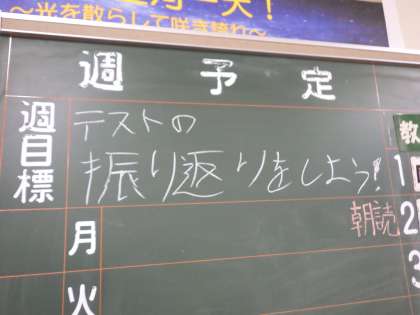 ～光を散らして咲き誇れ～
週予定
週目標
テストの
振り返りをしよう!
教
1
月
朝読
2
3
火